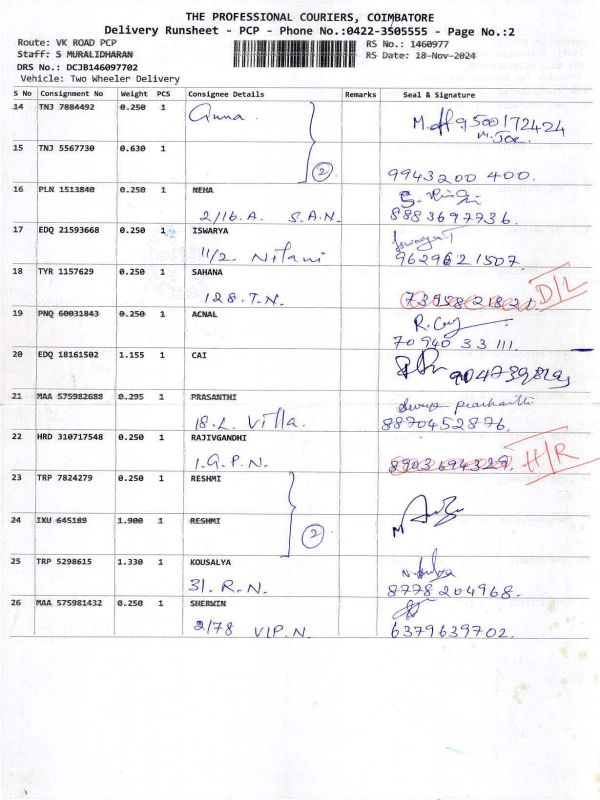 THE PROFESSIONAL COURIERS, COIMBATORE
Delivery Runsheet - PCP - Phone No.:0422-3505555 - Page No.:2
Route: VK ROAD PCP RS No.: 1460977
Staff: S MURALIDHARAN RS Date: 18-Nov-2024
DRS No.: DCJB146097702
Vehicle: Two Wheeler Delivery
S No Consignment No Weight PCS Consignee Details Remarks Seal & Signature
14 TNJ 7884492 0.250 1 Anna. 9500172424
M. Joe.
15 TNJ 5567730 0.630 1 2 9943200 400.
16 PLN 1513840 0.250 1 NEHA
2/16.A. S.A.N. 8883697736.
17 EDQ 21593668 0.250 1 ISWARYA Iswarya T
11/2. Nilani 9629621507.
18 TYR 1157629 0.250 1 SAHANA
128.T.N. D/L
19 PNQ 60031843 0.250 1 ACNAL
70940 33 111.
20 EDQ 18161502 1.155 1 CAI
21 MAA 575982688 0.295 1 PRASANTHI
18.L. Villa. 8870452876.
22 HRD 310717548 0.250 1 RAJIVGANDHI
1.G.P.N. 8903694327. H/R
23 TRP 7824279 0.250 1 RESHMI
24 IXU 645189 1.900 1 RESHMI 2
25 TRP 5298615 1.330 1 KOUSALYA
31. R.N. 8778204968.
26 MAA 575981432 0.250 1 SHERWIN
2/78 V.P.N. 6379639702.